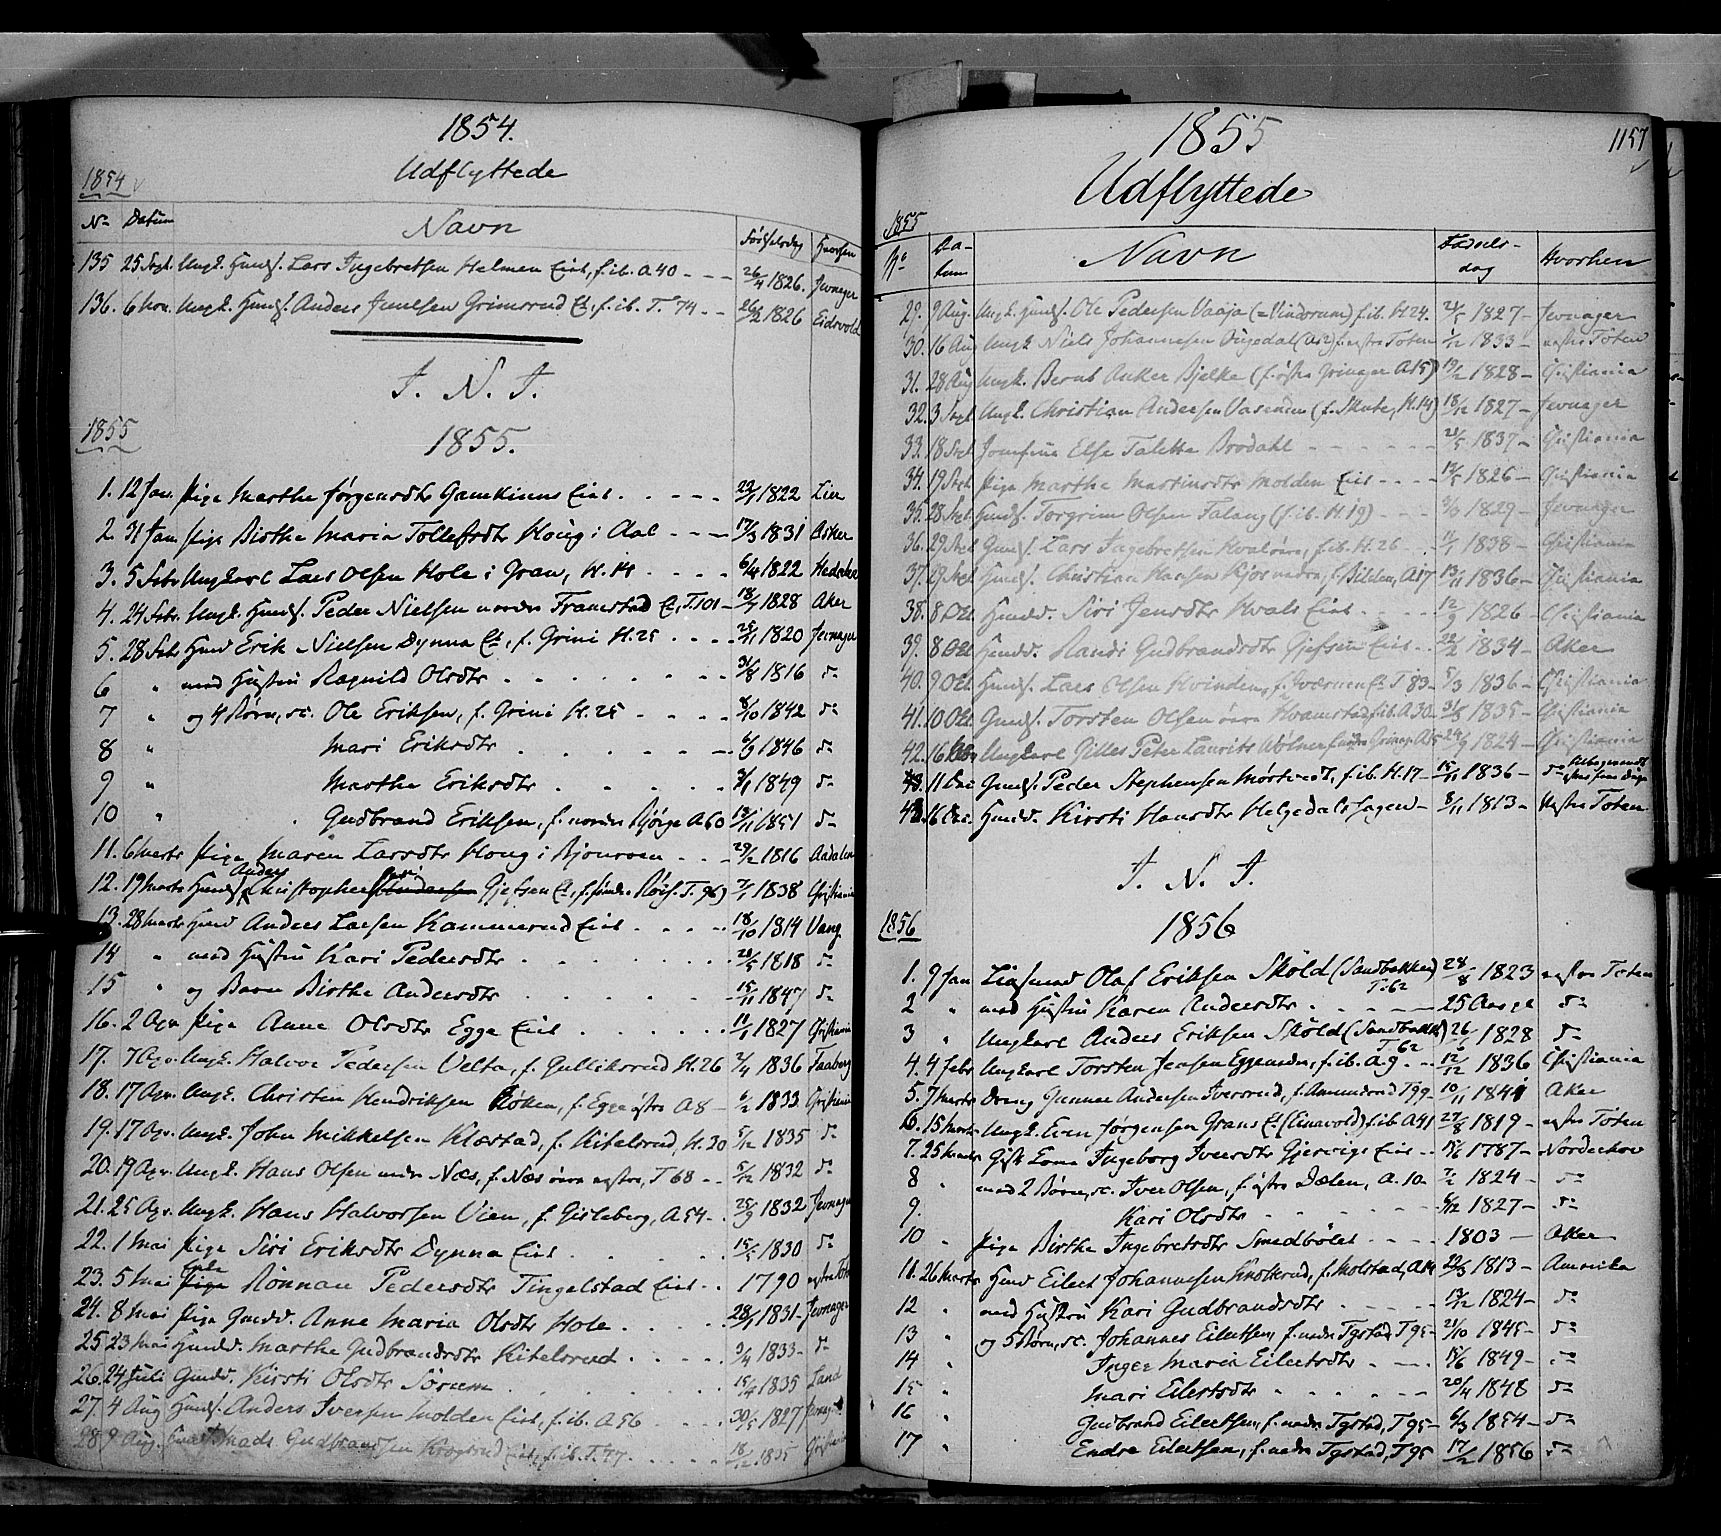 1854.
Udflyttede
1854
No Datum Navn Fødselsdag Hvorhen
135 25 Sept. Ungk. Huusf. Lars Ingebretsen Helmen Eie, f. ib. A 40 - - - 26/4 1826. Jevnager
136. 6 Nov. Ungk. Huusf. Anders Juulsen Grimsrud E, f. ib. T. 74 - - 1826 Eidsvold
I. N. I.
1855
1855.
1. 12 Jan. Pige Marthe Jørgensdtr Gamkinns Eie . . . . . 22/1 1822 Lier
2 31 Jan. Pige Birthe Maria Tollefsdtr Houg i Aal - - - - 17/3 1831 Asker
3. 5 Febr Ungkarl Lars Olsen Hole i Gran, H. 14 . . . . 6/4 1822
4. 24 Febr. Ungk. Huusf. Peder Nielsen nordre Framstad E, T. 101 - 18/7 1828 Aker
5. 28 Febr Huusm Erik Nielsen Dynna E, f. Grini H. 25 . . . . 25/11 1820 Jevnager
6 " med Hustru Ragnild Olsdtr . . . . . . . . 31/8 1816 do
7 " og 4 Børn, sc. Ole Eriksen, f. Grini H. 25 . . . . 8/10 1842 do
8 " Mari Eriksdtr . . . . . . . 6/9 1846 do
9 " Marthe Eriksdtr . . . . . . 3/1 1849 do
10 " Gudbrand Eriksen, f. nordre Bjørge A 60 13/11 1851 do
11. 6 Marts Pige Maren Larsdtr Houg i Bjoneroa - - - 29/2 1816 Aadalen
12. 19 Marts Huusf. Anders Christophersen Gjefsen E, f. søndr. Røis. T. 96) 7/1 1838 Christiania
13. 28 Marts Huusm Anders Larsen Kammerud Eie . . . . . 18/10 1814 Vang
14 " med Hustru Kari Pedersdtr . . . . . . . 1818 do
15 " og Barn Birthe Andersdtr . . . . . . . 15/11 1847 do
16. 2 Apr. Pige Anne Olsdtr Egge Eie . . . . . . 11/1 1827 Christiania
17. 7 Apr. Ungk. Halvor Pedersen Velta, f. Gulliksrud H. 26 2/4 1836 Faaberg
18. 17 Apr. Ungk. Christen Hendriksen Røken, f. Egge østre A 8 - 6/2 1833 Christiania
19. 17 Apr. Ungk. John Mikkelsen Klæstad, f. Kitelsrud, H. 30 5/12 1835 do
20. 19 Apr. Ungk. Hans Olsen nedre Næs, f. Næs øvre vestre, T 68 - - 5/12 1832 do
21. 25 Apr. Ungk. Hans Halvorsen Vien, f. Gisleberg, A 54 - . 25/9 1832 Jevnager
22. 1 Mai Pige Siri Eriksdtr Dynna Eie . . . . . 15/5 1830 do
23. 5 Mai Enke Rønnau Pedersdtr Tingelstad Eie . . 1790 vestre Toten
24. 8 Mai Pige Gaardd. Anne Maria Olsdtr Hole . . . . . 28/1 1831 - Jevnager
25 23 Mai Huusd. Marthe Gudbrandsdtr Kitelsrud . . . . . 3/4 1833 - do
26. 24 Juli Gaardd. Kirsti Olsdtr Sørum . . . . . . . 15/4 1835 Land
27. 4 Aug Huusf. Anders Iversen Molden Eie, f. ib. A 56 . . . . 30/5 1827 Jevnager
28. 9 Aug. Mads Gudbrandsen Krogsrud Eie, f. ib. T. 77 . . . . . 18/12 1835 Christiania
1855
1157
Udflyttede
1855
No Datum Navn Fødselsdag Hvorhen
29. 9 Aug. Ungk. Huusf. Ole Pedersen Vaaja (= Vindorum) f. ib. H 24. 24/5 1827 - Jevnager
30. 16 Aug Ungk. Niels Johannesen f. vestre Toten 1/12 1833 - vestre Toten
31. 28 Aug Ungk. Bernt Anker Bjelke (f. østre Grinager A 15) 19/12 1828 - Christiania
32. 3 Sept. Ungk. Christian Andersen Vasenden (f. Skute, H. 14) 18/12 1827 - Jevnager
33. 18 Sept Jomfrue Else Talette Brodahl - - - - - - 21/5 1837 - Christiania
34. 19 Sept. Pige Marthe Martinsdtr Molden Eie - - - - 12/5 1826 - Christiania
35. 28 Sept Huusf. Torgrim Olsen Falang (f. ib. H. 19) - - - - 1829 - Jevnager
36. 29 Sept Gaardf. Lars Ingebretsen Hvaløvre, f. ib. H. 26 . . 1838 - Christiania
37. 29 Sept Huusf. Christian Hansen Kjos nedre, f. Bilden, A 17 13/11 1836 - Christiania
38. 8 Oct Huusd. Siri Jensdtr Hvals Eie . . . . 12/9 1826 - Christiania
39. 8 Oct Huusd. Randi Gudbrandsdtr Gjefsen Eie - - 22/2 1834 - Aker
40. 9 Oct Huusf. Lars Olsen Hvinden, f. Sværen E T 83 - 5/3 1836 - Christiania
41. 10 Oct Gaardf. Torsten Olsen øvre Hvamstad f. ib. A 30 - 31/8 1835 - Christiania
42. 16 Ungkarl Gilles Peter Laurits Wølner Grinag. A 15 24/9 1824 - Christiania
43. 11 Dec Gaardf. Peder Stephensen Mørtvedt, f. ib. H. 17 - 15/11 1836 - do
16 Dec. Huusd. Kirsti Hansdtr Helgedals hagen - 8/11 1813 - Vestre Toten
I. N. I.
1856
1856
1. 9 Jan Ole Eriksen Sköld (Sandbakken) T. 62 28/8 1823 vestre Toten
2 " med Hustru Karen Andersdtr . . . . . 25 Aar gl do
3 " Ungkarl Anders Eriksen Sköld (Sandbakk) T. 62 26/6 1828 do
4. 4 Febr Ungkarl Torsten Jensen Eggenedre, f. ib. A 9 - - 12/12 1836 Christiania
5. 7 Marts Dreng Gunner Andersen Iversrud, f. Amundrud T 99 - 10/11 1841 Aker
6. 15 Marts Ungk. Even Jørgensen Grans E (Einavold) f. ib A 41 27/8 1819 - vestre Toten
7. 25 Marts Gift Kone Ingeborg Iversdtr Gjervigs Eie - - 15/6 1787 - Norderhov
8 " med 2 Børn, sc. Iver Olsen, f. østre Dælen, A. 10. 7/2 1824 - do
9. Kari Olsdtr . . . . . . . 6/12 1827 - do
10 " Pige Birthe Ingebretsdtr Smedbølet . . . . 1803 - Aker
11. 26 Marts Huusm Eilert Johannesen Knotterud, f. Molstad, A 14 22/3 1813 - Amerika
12 " med Hustru Kari Gudbrandsdtr . . . . . 13/12 1824 - do
13 " og 5 Børn, sc. Johannes Eilertsen, f. nedre Tgstad, T 95 - 21/10 1845 - do
14 " Inger Maria Eilertsdtr . - . . 15/6 1849 - do
15 " Mari Eilertsdtr . . . . . . 20/4 1848 do
16 " Gudbrand Eilertsen, f. nedre Tgstad, T 95 - 6/3 1854 - do
17 " Endre Eilertsen, f. nedre Tgstad, T 95 17/2 1856 do